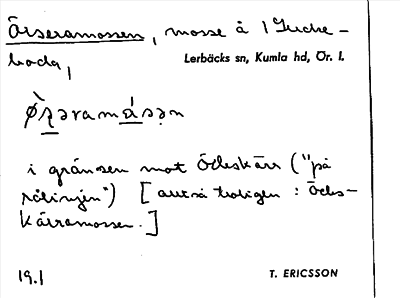 Örseramossen, mosse å 1 Gecke-
boda,
Lerbäcks sn, Kumla hd, Ör. l.
i gränsen mot Ödeskärr ("på
rålinjen") [ också troligen : Ödes-
kärrsmossen. ]
19.1
T. ERICSSON